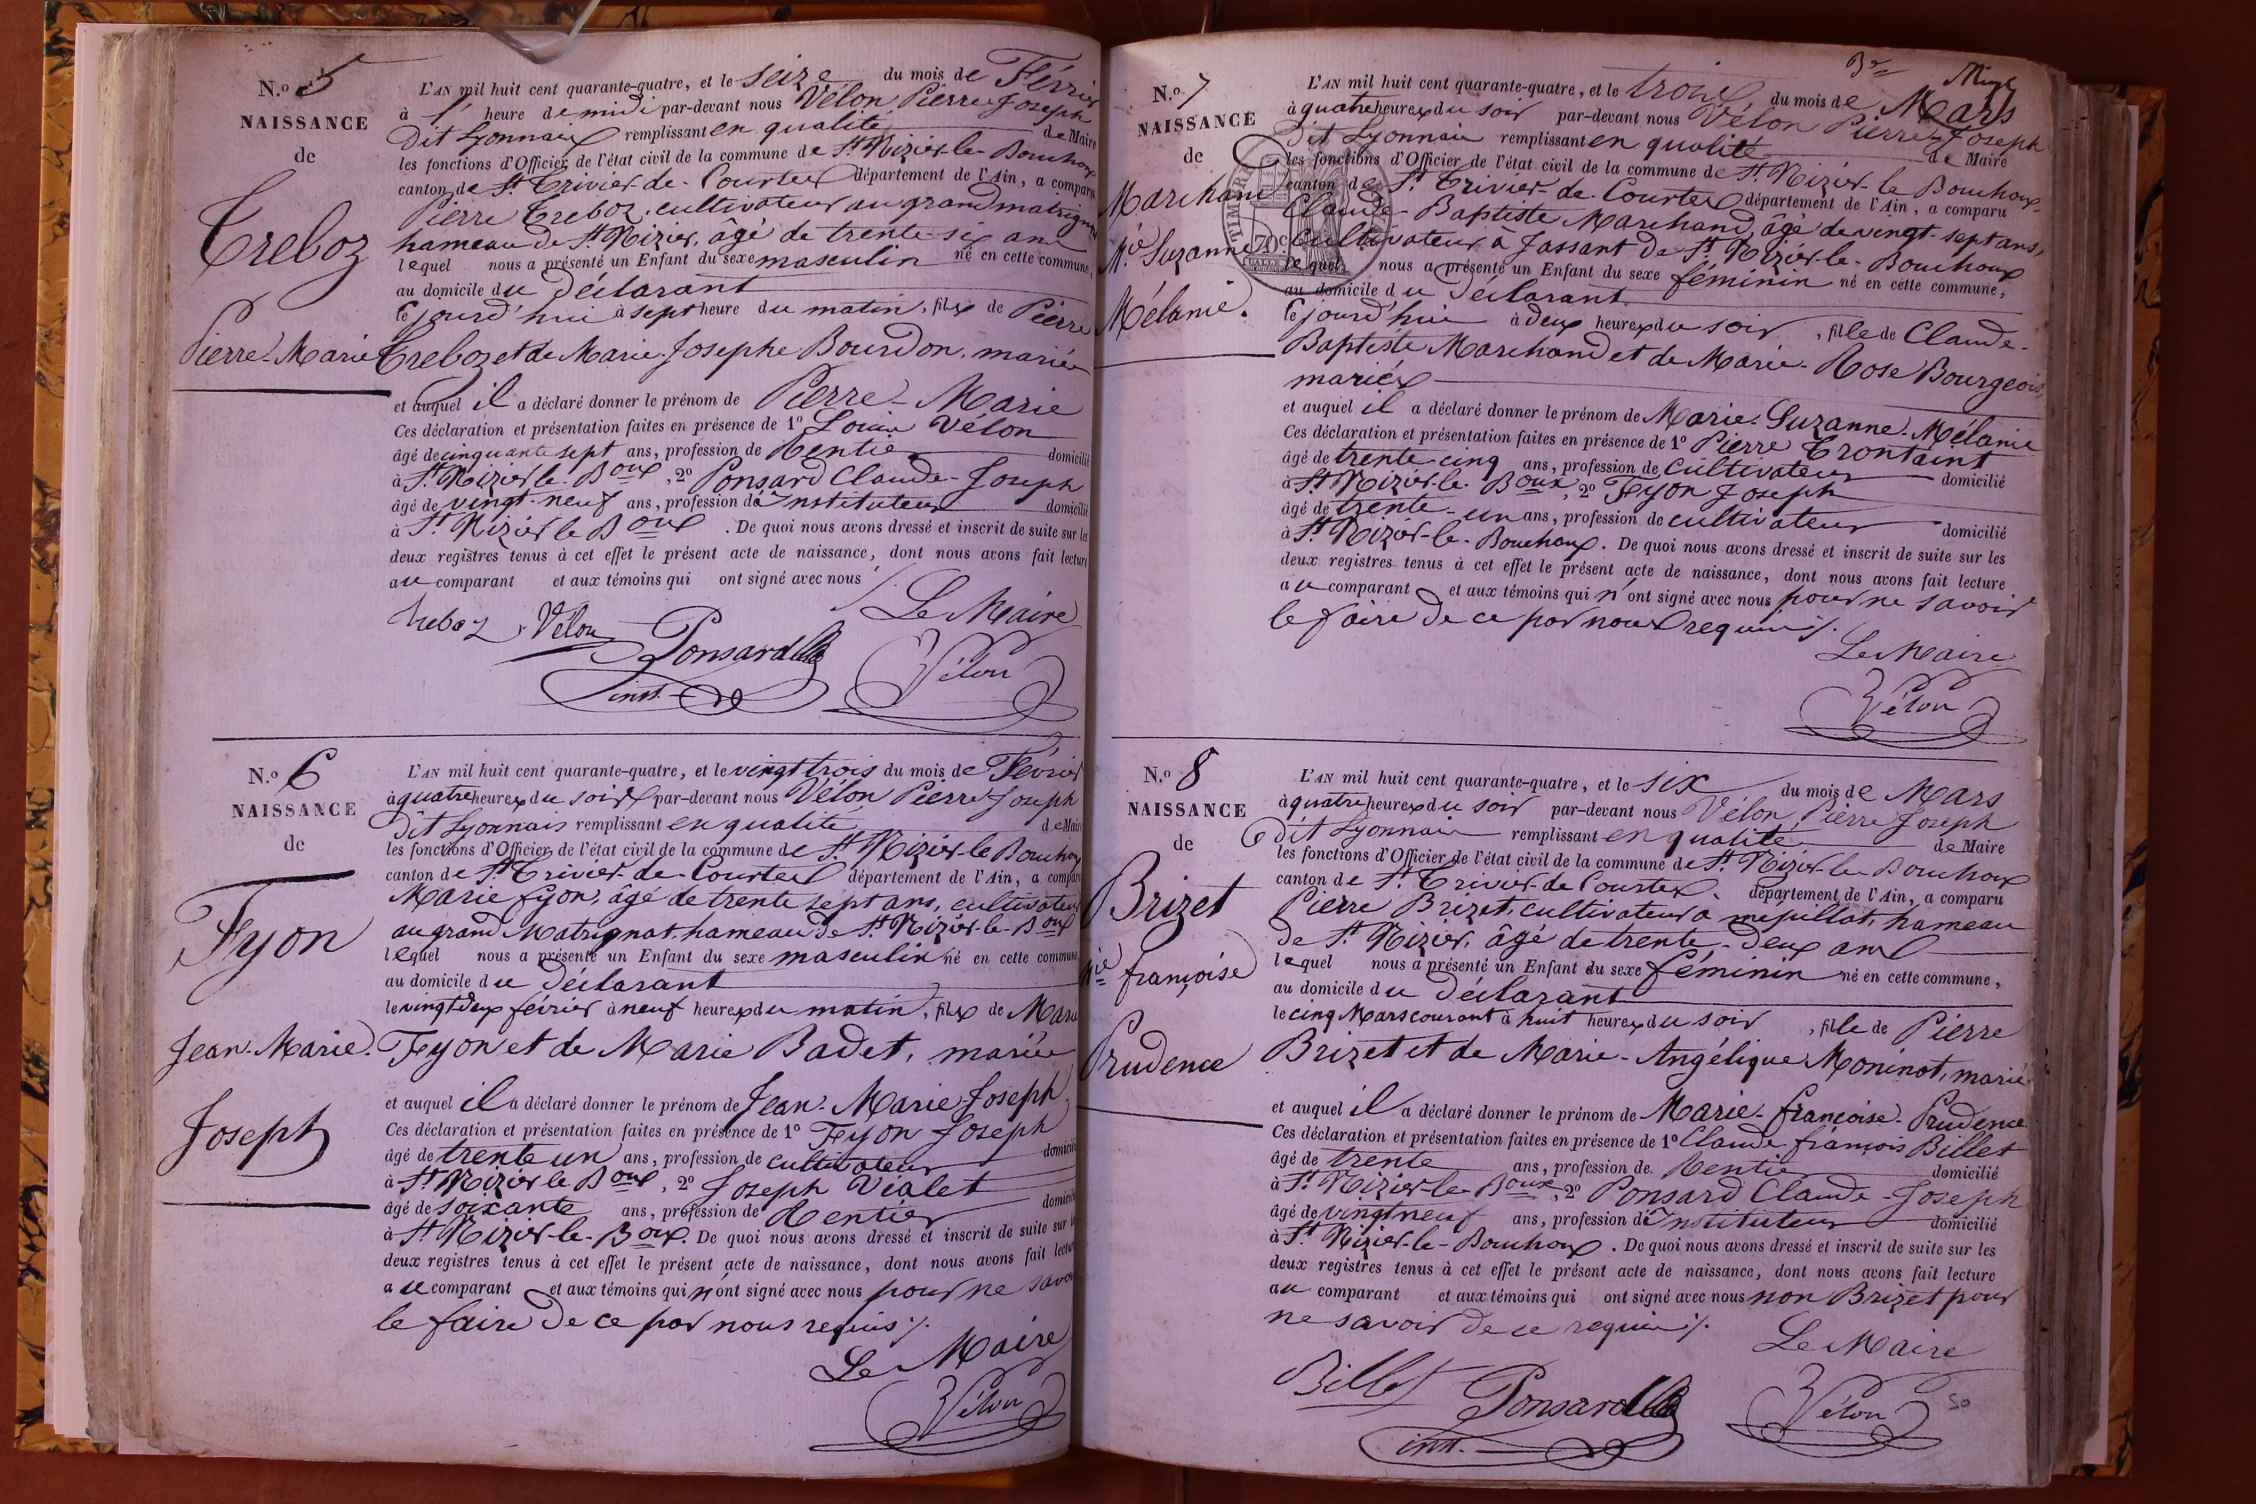 N.o 5
NAISSANCE
de
Treboz
Pierre-Marie
L'AN mil huit cent quarante-quatre, et le seize du mois de Février
à 1 heure de midi par-devant nous Vélon Pierre Joseph
Dit Lyonnais remplissant en qualité de Maire
les fonctions d'Officier de l'état civil de la commune de St. Nizier-le-Bouhoux
canton de St. Trivier-de-Courtes département de l'Ain, a comparu
Pierre Treboz, cultivateur au grand matrignat
hameau de St. Nizier, âgé de trente-six ans
lequel nous a présenté un Enfant du sexe masculin né en cette commune,
au domicile du Déclarant
Cejourd'hui à sept heure du matin, fils de Pierre
Treboz et de Marie-Josephe Bourdon, mariés
et auquel il a déclaré donner le prénom de Pierre-Marie
Ces déclaration et présentation faites en présence de 1o Louis Vélon
âgé de cinquante sept ans, profession de Rentier domicilié
à St. Nizier-le-Boux, 2o Ponsard Claude-Joseph
âgé de vingt-neuf ans, profession d'Instituteur domicilié
à St. Nizier le Boux. De quoi nous avons dressé et inscrit de suite sur les
deux registres tenus à cet effet le présent acte de naissance, dont nous avons fait lecture
au comparant et aux témoins qui ont signé avec nous
Le Maire
Treboz Vélon Ponsard
inst. Vélon
N.o 6
NAISSANCE
de
Fyon
Jean-Marie
Joseph
L'AN mil huit cent quarante-quatre, et le vingt trois du mois de Février
à quatre heures du soir par-devant nous Vélon Pierre Joseph
Dit Lyonnais remplissant en qualité de Maire
les fonctions d'Officier de l'état civil de la commune de St. Nizier-le-Bouhoux
canton de St. Trivier-de-Courtes département de l'Ain, a comparu
Marie fyon, âgé de trente sept ans, cultivateur
au grand Matrignat, hameau de St. Nizier-le-Boux
lequel nous a présenté un Enfant du sexe masculin né en cette commune
au domicile du Déclarant
le vingt deux février à neuf heures du matin, fils de Marie
Fyon et de Marie Badet, mariés
et auquel il a déclaré donner le prénom de Jean-Marie-Joseph
Ces déclaration et présentation faites en présence de 1o Fyon Joseph
âgé de trente un ans, profession de cultivateur domicilié
à St. Nizier le Boux, 2o Joseph Vialet
âgé de soixante ans, profession de Rentier domicilié
à St. Nizier-le-Boux. De quoi nous avons dressé et inscrit de suite sur les
deux registres tenus à cet effet le présent acte de naissance, dont nous avons fait lecture
au comparant et aux témoins qui n'ont signé avec nous pour ne savoir
le faire de ce par nous requis ./.
Le Maire
Vélon
N.o 7
NAISSANCE
de
Marchand
Mie. Suzanne
Mélanie.
L'AN mil huit cent quarante-quatre, et le trois du mois de Mars
à quatre heures du soir par-devant nous Vélon Pierre Joseph
Dit Lyonnais remplissant en qualité de Maire
les fonctions d'Officier de l'état civil de la commune de St. Nizier-le Bouhoux
canton de St. Trivier-de-Courtes département de l'Ain, a comparu
Claude-Baptiste Marchand, âgé de vingt-sept ans,
Cultivateur à Jassant de St. Nizier-le-Bouhoux
lequel nous a présenté un Enfant du sexe féminin né en cette commune,
au domicile du Déclarant
Cejourd'hui à deux heures du soir, fille de Claude-
Baptiste Marchand et de Marie-Rose Bourgeois,
mariés
et auquel il a déclaré donner le prénom de Marie-Suzanne-Mélanie
Ces déclaration et présentation faites en présence de 1o Pierre Trontaint
âgé de trente cinq ans, profession de cultivateur domicilié
à St. Nizier-le-Boux, 2o Fyon Joseph
âgé de trente-un ans, profession de cultivateur domicilié
à St. Nizier-le-Bouhoux. De quoi nous avons dressé et inscrit de suite sur les
deux registres tenus à cet effet le présent acte de naissance, dont nous avons fait lecture
au comparant et aux témoins qui n'ont signé avec nous pour ne savoir
le faire de ce par nous requis ./.
Le Maire
Vélon
N.o 8
NAISSANCE
de
Brizet
Mie françoise
Prudence
L'AN mil huit cent quarante-quatre, et le six du mois de Mars
à quatre heures du soir par-devant nous Vélon, Pierre Joseph
dit Lyonnais remplissant en qualité de Maire
les fonctions d'Officier de l'état civil de la commune de St. Nizier-le-Bouhoux
canton de St. Trivier-de Courtes. département de l'Ain, a comparu
Pierre Brizet, cultivateur à mépillat, hameau
de St. Nizier, âgé de trente-deux ans
lequel nous a présenté un Enfant du sexe féminin né en cette commune,
au domicile du Déclarant
le cinq Mars courant à huit heures du soir, fille de Pierre
Brizet et de Marie-Angélique Moninot, mariés
et auquel il a déclaré donner le prénom de Marie-françoise-Prudence
Ces déclaration et présentation faites en présence de 1o Claude françois Billet
âgé de trente ans, profession de Rentier domicilié
à St. Nizier-le-Boux, 2o Ponsard Claude-Joseph
âgé de vingt neuf ans, profession d'Instituteur domicilié
à St. Nizier-le-Bouhoux. De quoi nous avons dressé et inscrit de suite sur les
deux registres tenus à cet effet le présent acte de naissance, dont nous avons fait lecture
au comparant et aux témoins qui ont signé avec nous non Brizet pour
ne savoir de ce requis ./.
Le Maire
Billet Ponsard Vélon
inst.